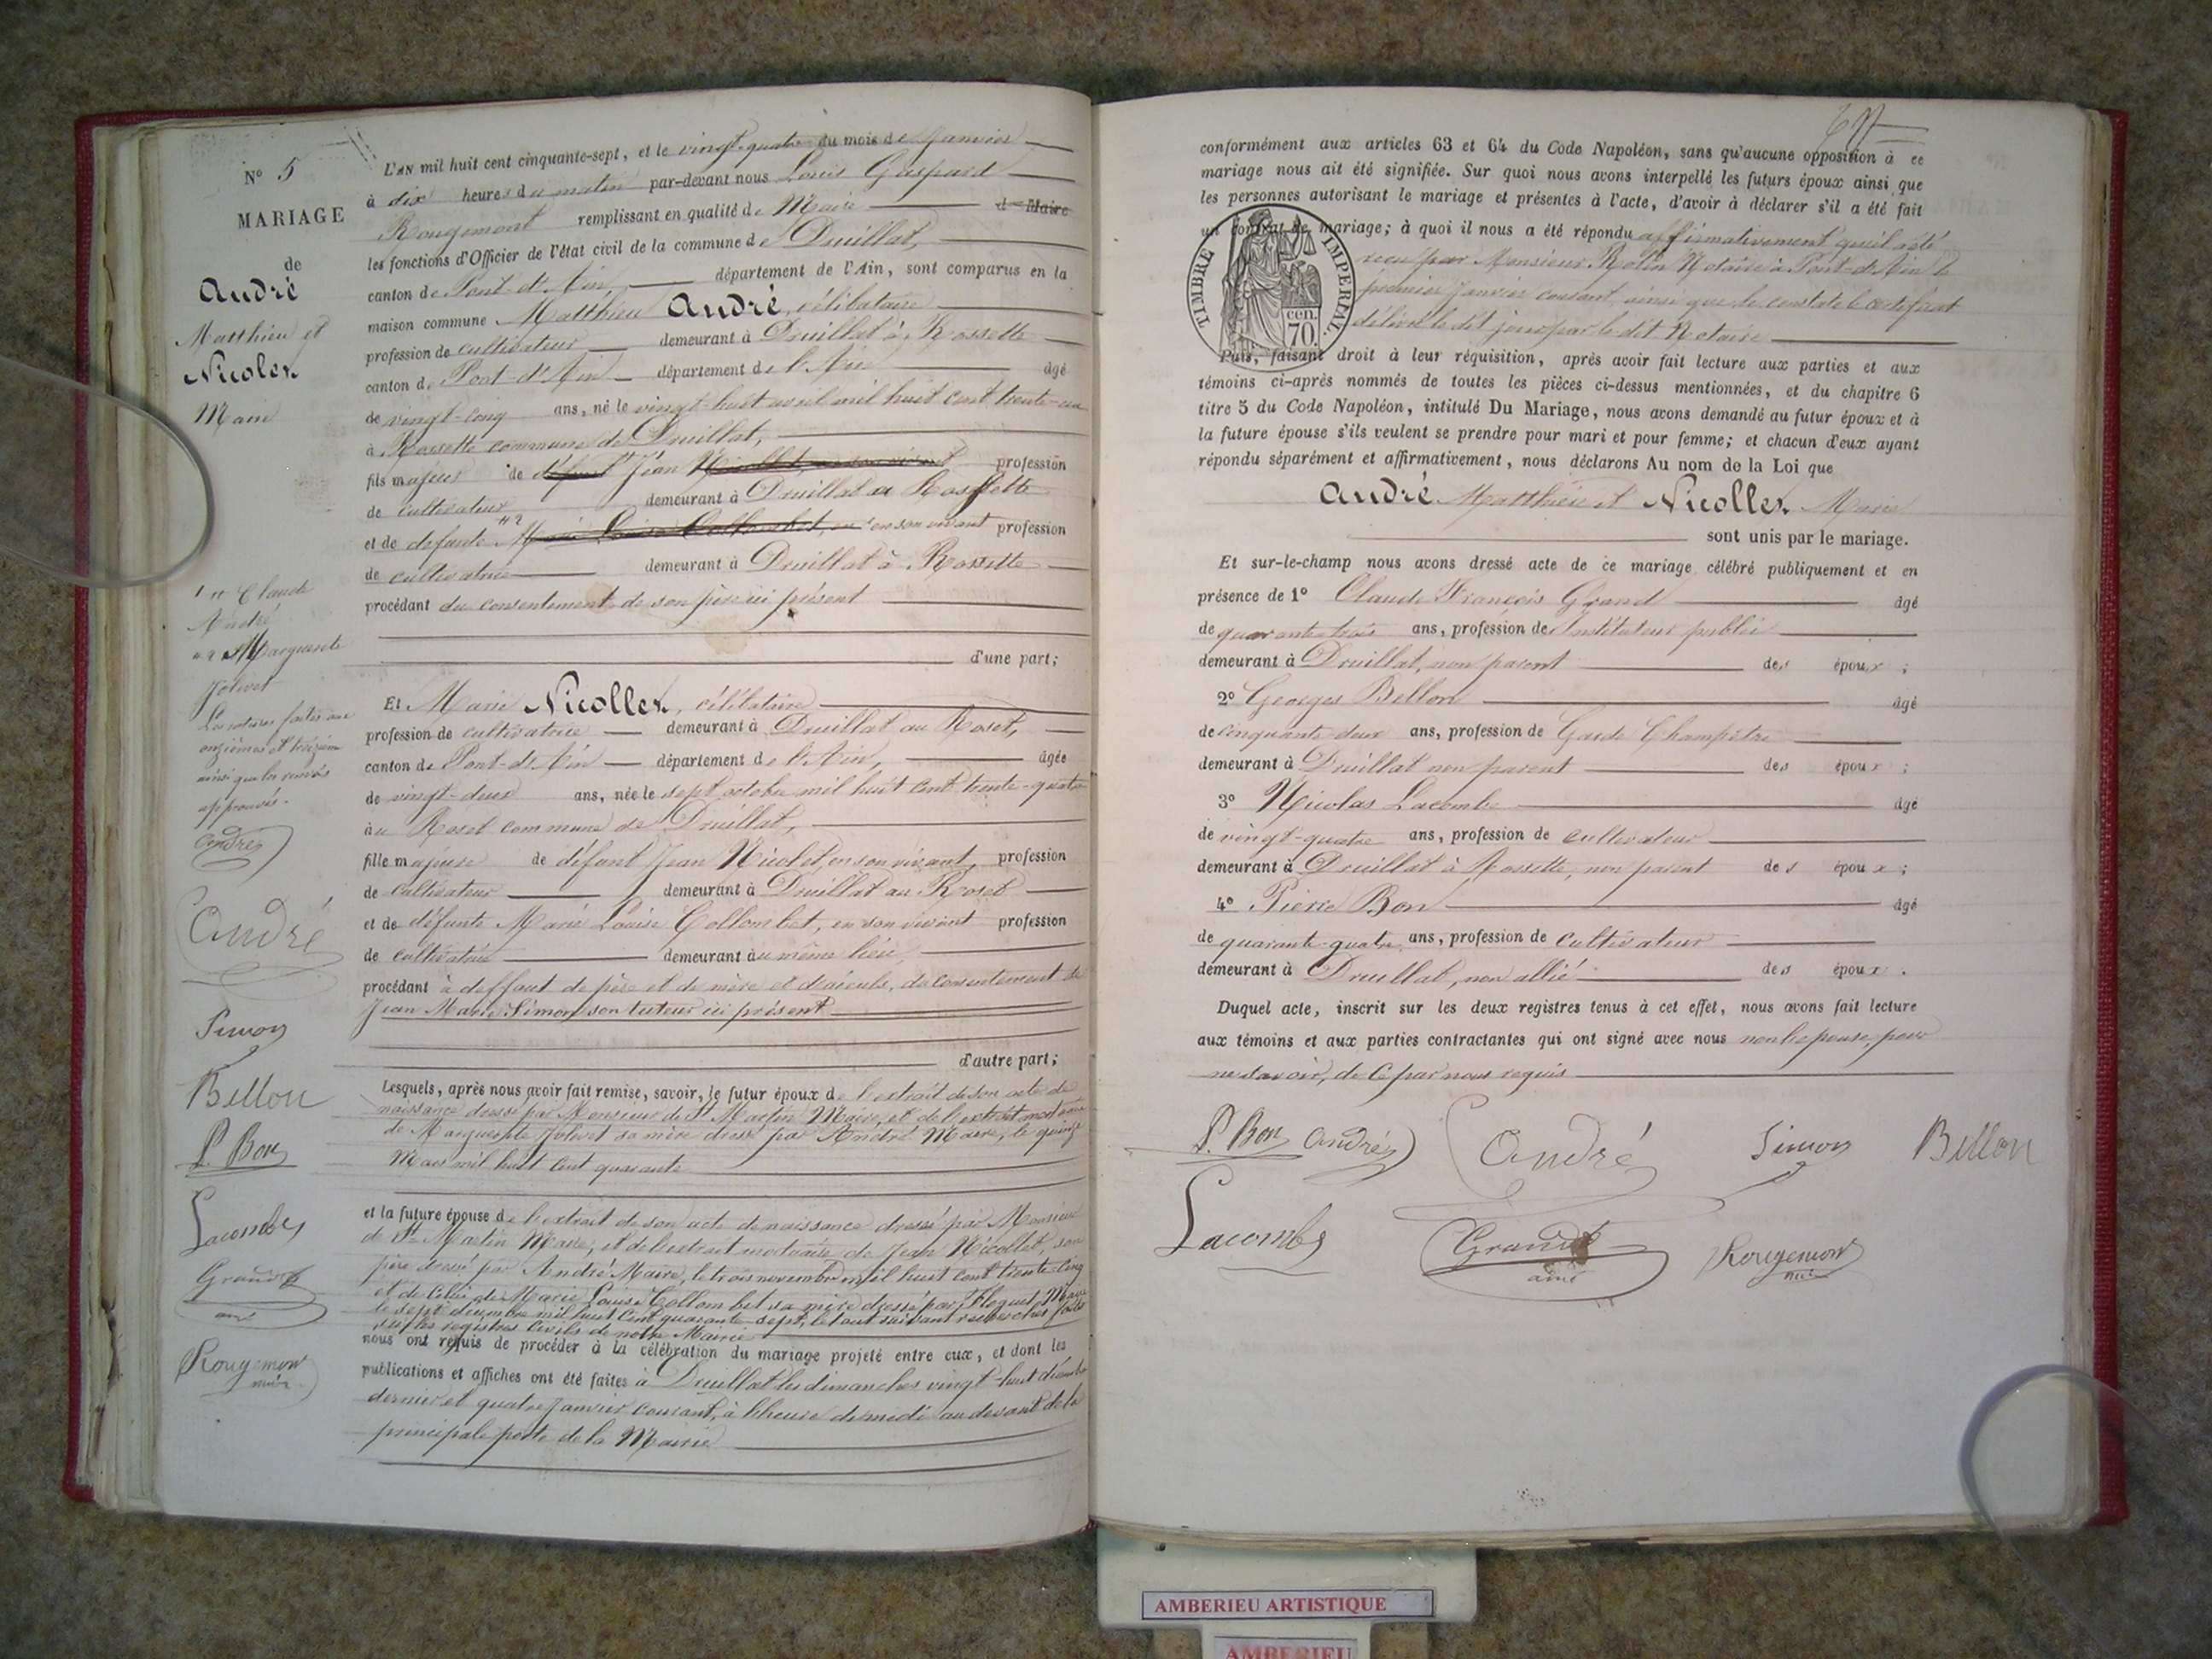 N° 5
MARIAGE
de
André
Matthieu et
Nicollet
Marie
#1 Claude
André
#2 Marguerite
Jolivet
Les ratures faites aux
onzièmes et treizième
ainsi que les renvois
approuvés.
André
André
Simon
Bellon
P. Bon
Lacombe
Grand
ainé
Rougemont
maire
L'AN mil huit cent cinquante-sept, et le vingt-quatre du mois de Janvier
à dix heures du matin par-devant nous Louis Gaspard
Rougemont remplissant en qualité de Maire de Maire
les fonctions d'Officier de l'état civil de la commune de Druillat,
canton de Pont-d'Ain, département de l'Ain, sont comparus en la
maison commune Matthieu André, célibataire
profession de cultivateur demeurant à Druillat à Rossette
canton de Pont-d'Ain département de l'Ain âgé
de vingt-cinq ans, né le vingt-huit avril mil huit cent trente-un
à Rossette commune de Druillat,
fils majeur de défunt Jean Nicollet, en son vivant profession
de cultivateur demeurant à Druillat à Rossette
et de défunte #2 Marie Louise Collombet, en en son vivant profession
de cultivatrice demeurant à Druillat à Rossette
procédant du consentement de son père ici présent
d'une part;
Et Marie Nicollet, célibataire
profession de cultivatrice demeurant à Druillat au Roset,
canton de Pont-d'Ain département de l'Ain, âgée
de vingt-deux ans, née le sept octobre mil huit cent trente-quatre
au Roset commune de Druillat,
fille majeure de défunt Jean Nicolet, en son vivant, profession
de cultivateur demeurant à Druillat au Roset
et de défunte Marie Louise Collombet, en son vivant profession
de cultivatrice demeurant au même lieu,
procédant à deffaut de père et de mère et d'aïeuls, du consentement de
Jean Marie Simon son tuteur ici présent
d'autre part;
Lesquels, après nous avoir fait remise, savoir, le futur époux de l'extrait de son acte de
naissance dressé par Monsieur de St Martin Maire, et de l'extrait mortuaire
de Marguerite Jolivet sa mère dressé par André Maire, le quinze
Mars mil huit cent quarante
et la future épouse de l'extrait de son acte de naissance dressé par Monsieur
de St Martin Maire, et de l'extrait mortuaire de Jean Nicollet, son
père dressé par André Maire, le trois novembre mil huit cent trente-cinq
et de celui de Marie Louise Collombet sa mère dressé par Floquet Maire
le sept décembre mil huit cent quarante-sept, le tout suivant recherches faites
sur les registres civils de notre Mairie
nous ont requis de procéder à la célébration du mariage projeté entre eux, et dont les
publications et affiches ont été faites à Druillat les dimanches vingt-huit décembre
dernier et quatre Janvier courant, à l'heure de midi au devant de la
principale porte de la Mairie
conformément aux articles 63 et 64 du Code Napoléon, sans qu'aucune opposition à ce
mariage nous ait été signifiée. Sur quoi nous avons interpellé les futurs époux ainsi que
les personnes autorisant le mariage et présentes à l'acte, d'avoir à déclarer s'il a été fait
un contrat de mariage; à quoi il nous a été répondu affirmativement qu'il a été
reçu par Monsieur Rolin Notaire à Pont-d'Ain le
premier Janvier courant, ainsi que le constate le certificat
délivré le dit jour par le dit Notaire
TIMBRE IMPERIAL.
cen.
70.
Puis, faisant droit à leur réquisition, après avoir fait lecture aux parties et aux
témoins ci-après nommés de toutes les pièces ci-dessus mentionnées, et du chapitre 6
titre 5 du Code Napoléon, intitulé Du Mariage, nous avons demandé au futur époux et à
la future épouse s'ils veulent se prendre pour mari et pour femme; et chacun d'eux ayant
répondu séparément et affirmativement, nous déclarons Au nom de la Loi que
André Matthieu et Nicollet Marie
sont unis par le mariage.
Et sur-le-champ nous avons dressé acte de ce mariage célébré publiquement et en
présence de 1° Claude François Grand âgé
de quarante-trois ans, profession de Instituteur public
demeurant à Druillat, non parent des époux ;
2° Georges Bellon âgé
de cinquante deux ans, profession de Garde Champêtre
demeurant à Druillat non parent des époux ;
3° Nicolas Lacombe âgé
de vingt-quatre ans, profession de cultivateur
demeurant à Druillat à Rossette, non parent des époux ;
4° Pierre Bon âgé
de quarante-quatre ans, profession de cultivateur
demeurant à Druillat, non allié des époux .
Duquel acte, inscrit sur les deux registres tenus à cet effet, nous avons fait lecture
aux témoins et aux parties contractantes qui ont signé avec nous non l'epouse, pour
ne savoir, de ce par nous requis
P. Bon André André Simon Bellon
Lacombe Grand Rougemont
ainé
AMBERIEU ARTISTIQUE
AMBERIEU